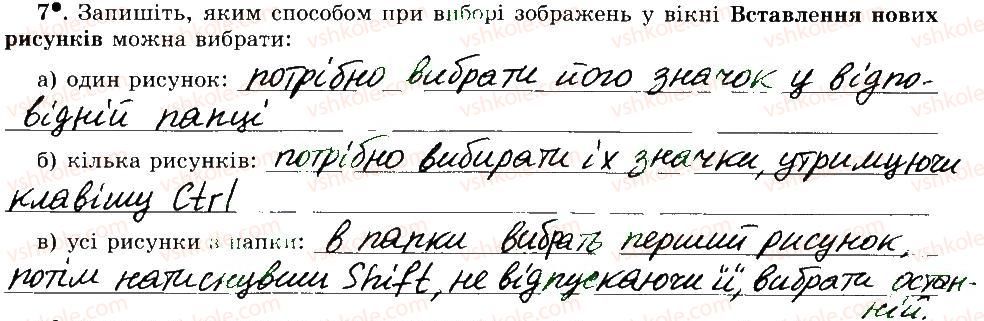 7•. Запишіть, яким способом при виборі зображень у вікні Вставлення нових
рисунків можна вибрати:
а) один рисунок: потрібно вибрати його значок у відпо-
відній папці
б) кілька рисунків: потрібно вибирати їх значки, утримуючи
клавішу Ctrl
в) усі рисунки з папки: в папки вибрать перший рисунок,
потім натиснувши Shift, не відпускаючи її, вибрати остан-
ній.